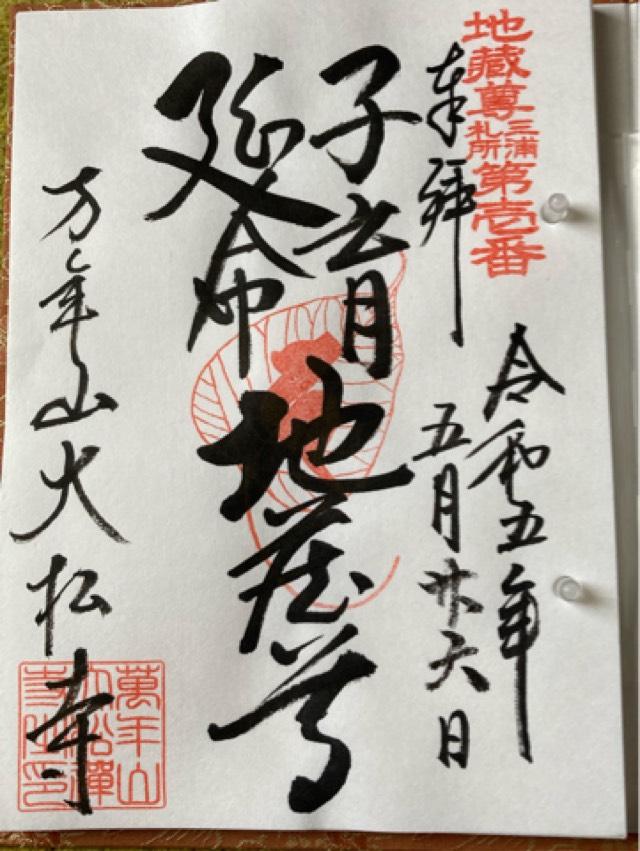 地蔵尊
三浦
札所
第壱番
奉拝
令和五年
五月廿六日
子育
延命
地蔵尊
万年山大松寺
萬年山
大松禪
寺之印